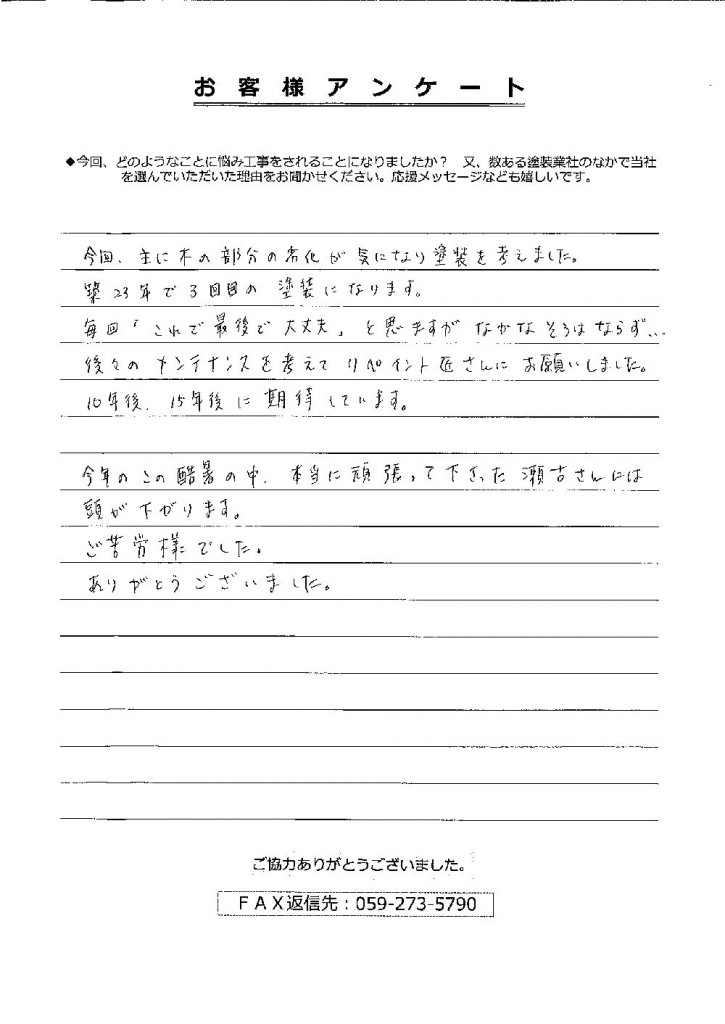 お客様アンケート
◆今回、どのようなことに悩み工事をされることになりましたか？　又、数ある塗装業社のなかで当社
を選んでいただいた理由をお聞かせください。応援メッセージなども嬉しいです。
今回、主に木の部分の劣化が気になり塗装を考えました。
築23年で3回目の塗装になります。
毎回「これで最後で大丈夫」と思いますがなかなそうはならず…
後々のメンテナンスを考えてリペイント匠さんにお願いしました。
10年後、15年後に期待しています。
今年のこの酷暑の中、本当に頑張って下さった瀬古さんには
頭が下がります。
ご苦労様でした。
ありがとうございました。
ご協力ありがとうございました。
ＦＡＸ返信先：059-273-5790